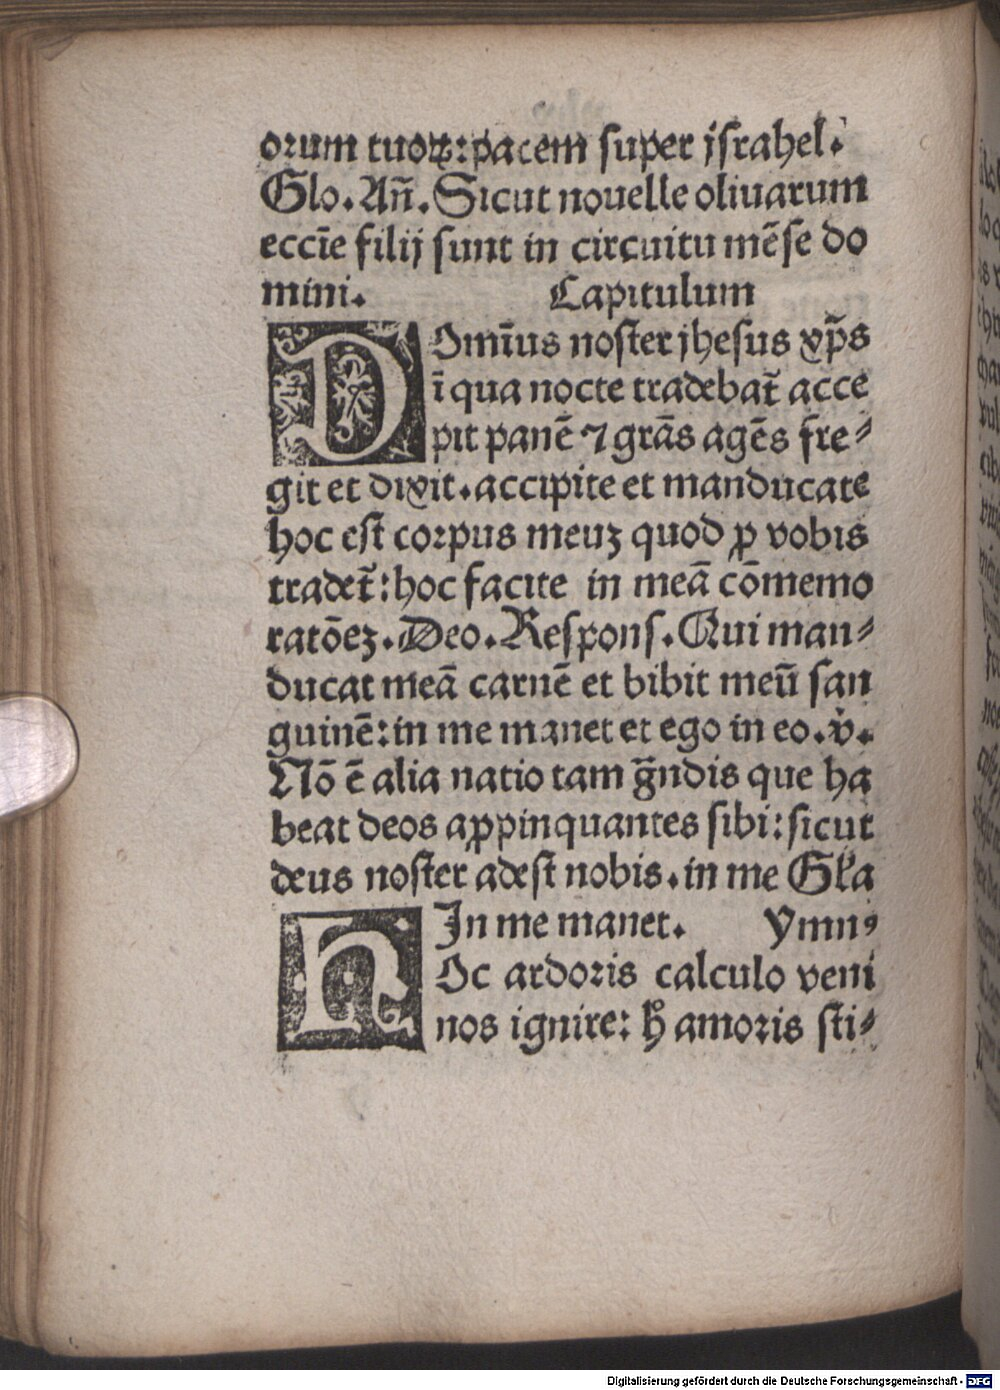 orum tuoꝝ: pacem super jsrahel.
Glo. Añ. Sicut nouelle oliuarum
eccīe filij sunt in circuitu mēse do
mini. Capitulum
DOmīus noster jhesus xp̄s
ī qua nocte tradebat̄ acce
pit panē ⁊ grās agēs fre⸗
git et dixit. accipite et manducate
hoc est corpus meuꝫ quod ꝓ vobis
tradet̄: hoc facite in meā cōmemo
ratōeꝫ. Deo. Respons. Qui man⸗
ducat meā carnē et bibit meū san
guinē: in me manet et ego in eo. v̇.
Nō ē alia natio tam g̃ndis que ha
beat deos aꝓpinquantes sibi: sicut
deus noster adest nobis. in me Gl̃a
In me manet. Ymnꝰ
HOc ardoris calculo veni
nos ignire: h̊ amoris sti⸗
Digitalisierung gefördert durch die Deutsche Forschungsgemeinschaft - DFG